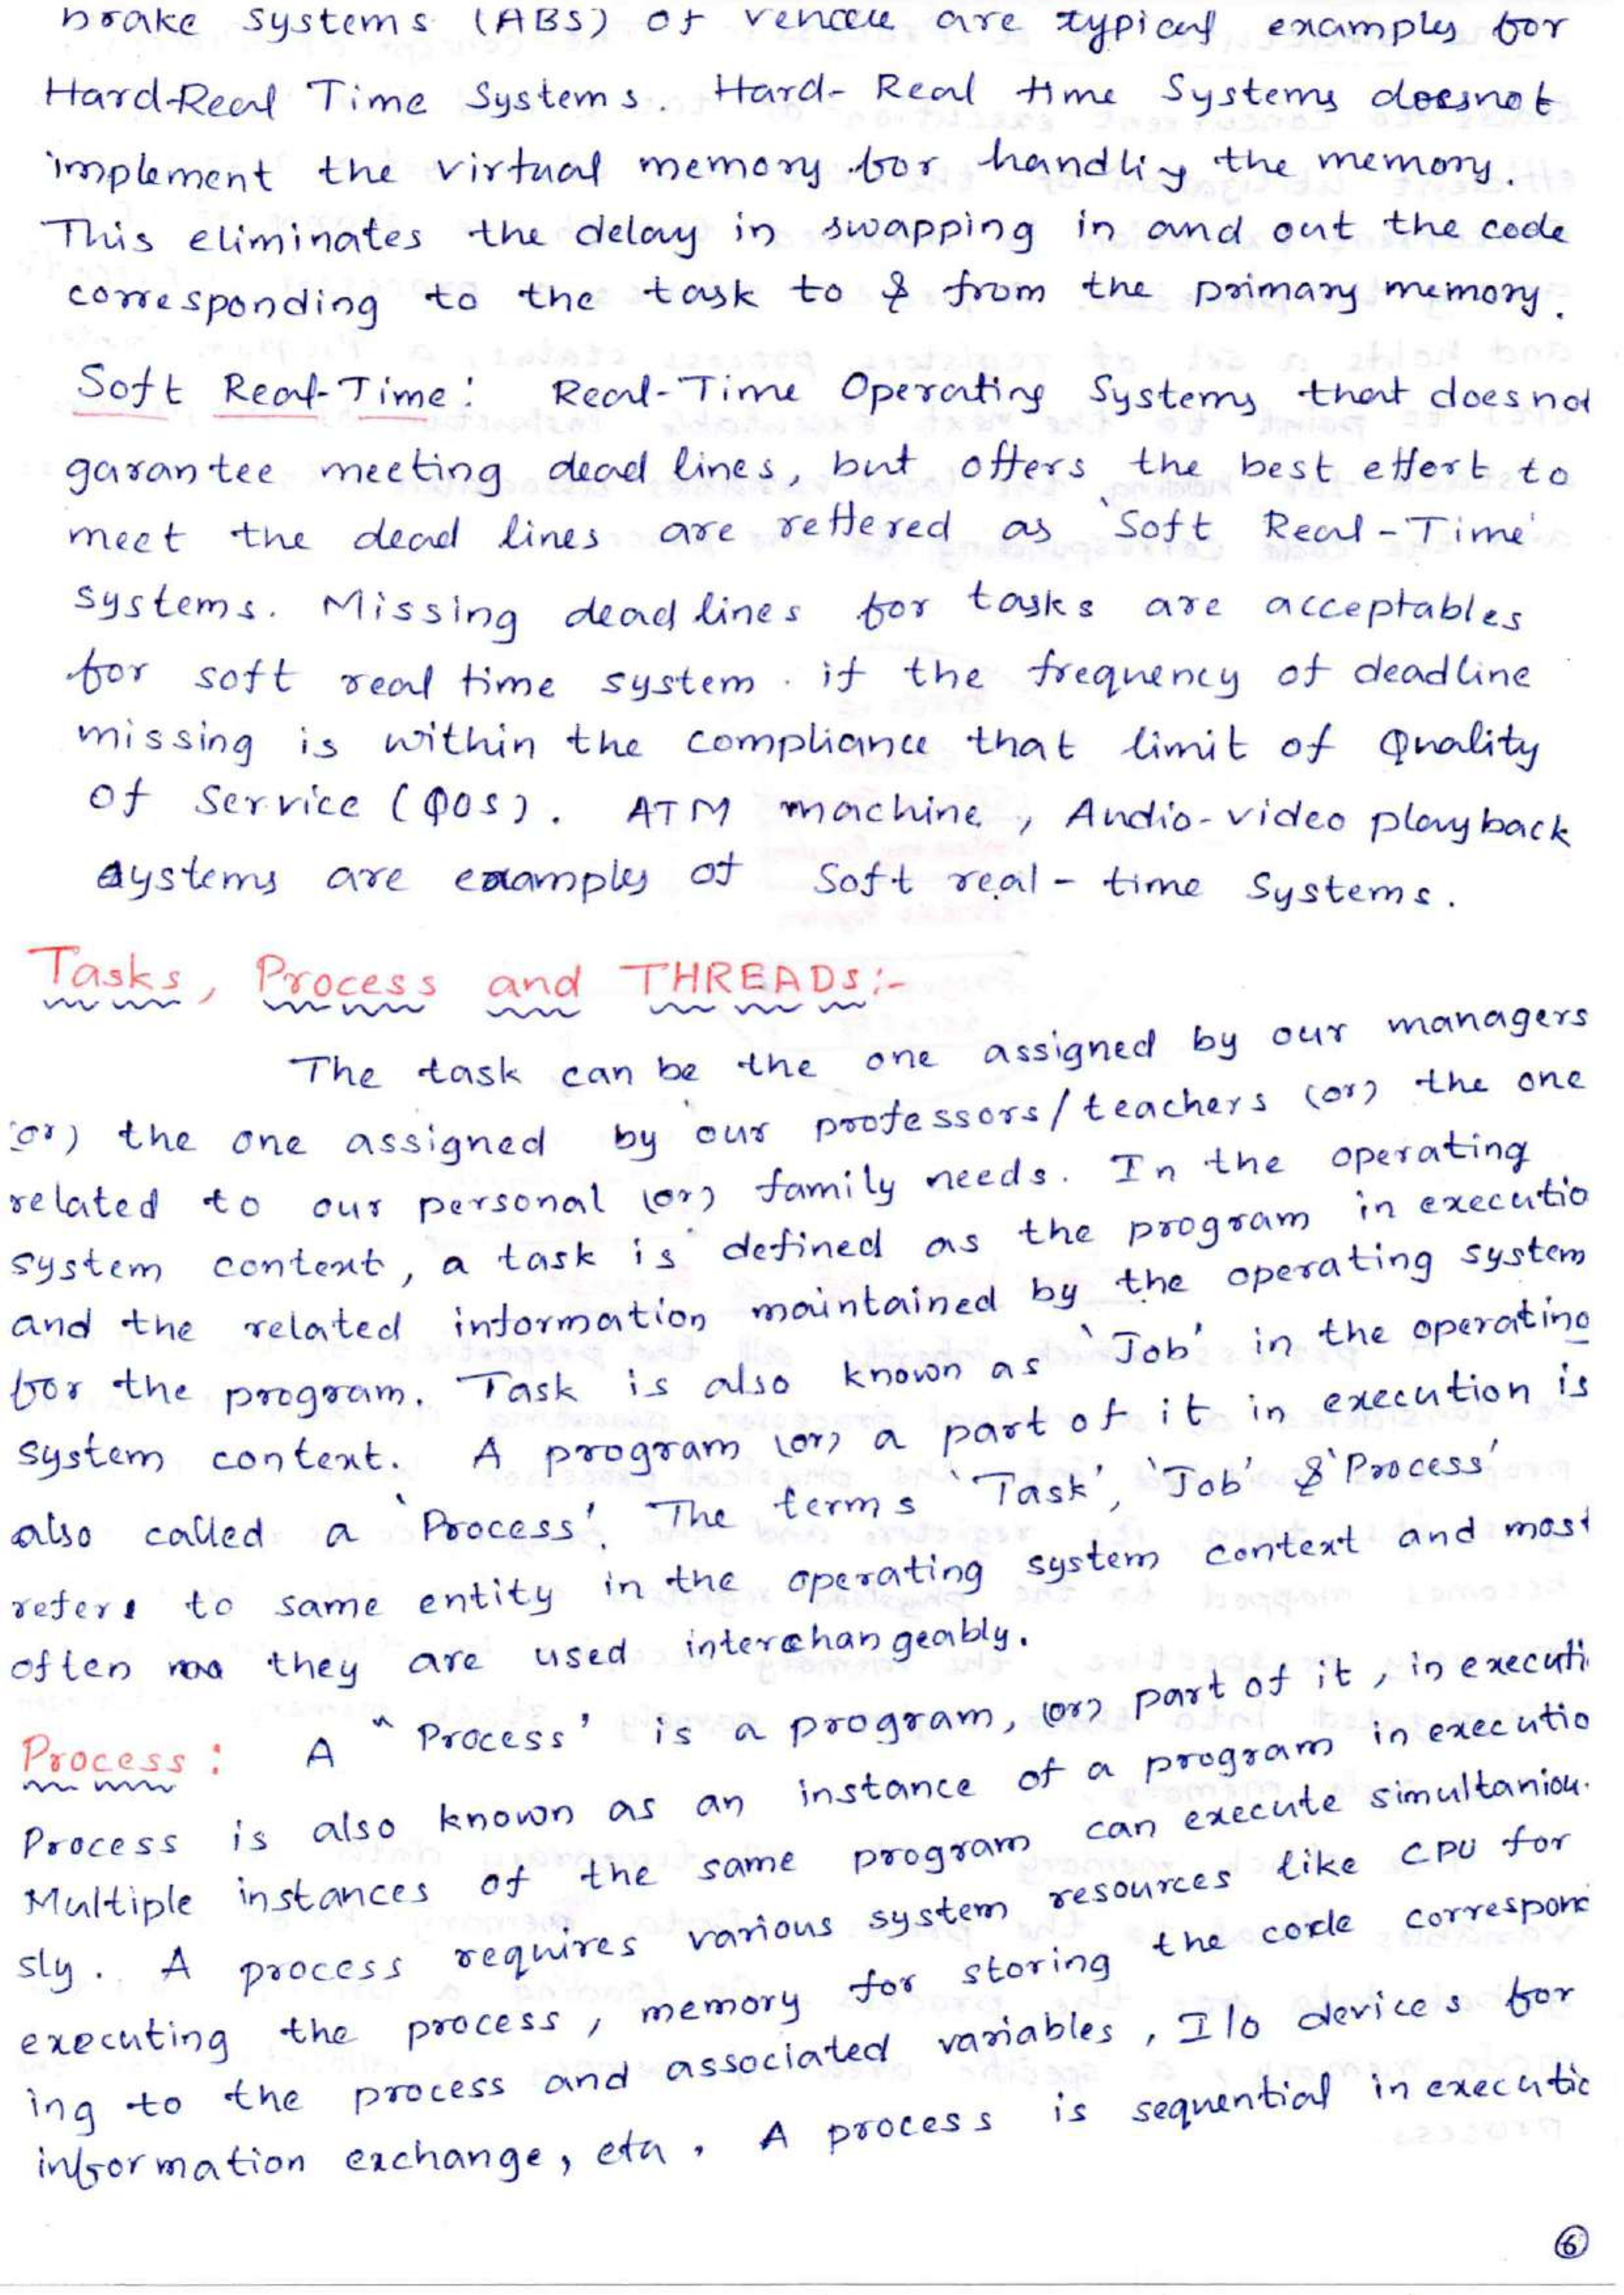 brake systems (ABS) of vehicle are typical examples for
Hard-Real Time Systems. Hard-Real time Systems doesnot
implement the virtual memory for handling the memory.
This eliminates the delay in swapping in and out the code
corresponding to the task to & from the primary memory.
Soft Real-Time: Real-Time Operating Systems that doesnot
garantee meeting dead lines, but offers the best effort to
meet the dead lines are reffered as 'Soft Real-Time'
systems. Missing deadlines for tasks are acceptables
for soft real time system. if the frequency of deadline
missing is within the compliance that limit of Quality
of Service (QOS). ATM machine, Audio-video playback
systems are examples of Soft real-time Systems.
Tasks, Process and THREADS:-
The task can be the one assigned by our managers
(or) the one assigned by our professors/teachers (or) the one
related to our personal (or) family needs. In the operating
system context, a task is defined as the program in executio
and the related information maintained by the operating system
for the program. Task is also known as 'Job' in the operating
system context. A program (or) a part of it in execution is
also called a 'Process'. The terms 'Task', 'Job' & 'Process'
refers to same entity in the operating system context and most
often they are used interchangeably.
Process: A "Process' is a program, (or) part of it, in executi
Process is also known as an instance of a program in executio
Multiple instances of the same program can execute simultaniou-
sly. A process requires various system resources like CPU for
executing the process, memory for storing the code correspond
ing to the process and associated variables, I/o devices for
information exchange, etc. A process is sequential in executio
6